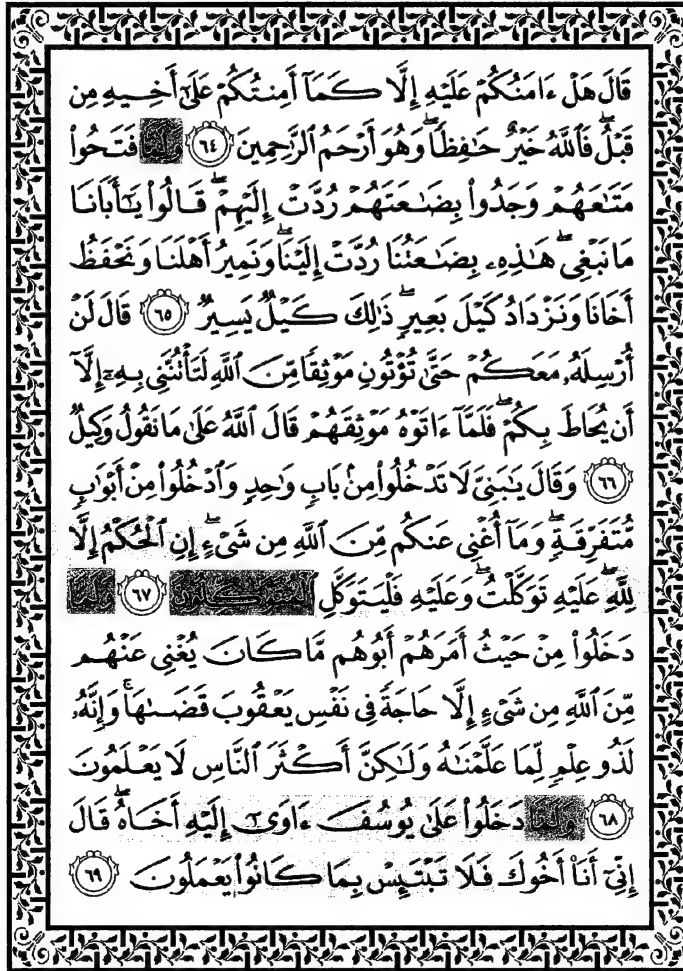 قَالَ هَلْ ءَامَنُكُمْ عَلَيْهِ إِلَّا كَمَآ أَمِنتُكُمْ عَلَىٰٓ أَخِيهِ مِن
قَبْلُ ۖ فَٱللَّهُ خَيْرٌ حَٰفِظًا ۖ وَهُوَ أَرْحَمُ ٱلرَّٰحِمِينَ ٦٤ وَلَمَّا فَتَحُوا۟
مَتَٰعَهُمْ وَجَدُوا۟ بِضَٰعَتَهُمْ رُدَّتْ إِلَيْهِمْ ۖ قَالُوا۟ يَٰٓأَبَانَا
مَا نَبْغِى ۖ هَٰذِهِۦ بِضَٰعَتُنَا رُدَّتْ إِلَيْنَا ۖ وَنَمِيرُ أَهْلَنَا وَنَحْفَظُ
أَخَانَا وَنَزْدَادُ كَيْلَ بَعِيرٍ ۖ ذَٰلِكَ كَيْلٌ يَسِيرٌ ٦٥ قَالَ لَنْ
أُرْسِلَهُۥ مَعَكُمْ حَتَّىٰ تُؤْتُونِ مَوْثِقًا مِّنَ ٱللَّهِ لَتَأْتُنَّنِى بِهِۦٓ إِلَّآ
أَن يُحَاطَ بِكُمْ ۖ فَلَمَّآ ءَاتَوْهُ مَوْثِقَهُمْ قَالَ ٱللَّهُ عَلَىٰ مَا نَقُولُ وَكِيلٌ
٦٦ وَقَالَ يَٰبَنِىَّ لَا تَدْخُلُوا۟ مِنۢ بَابٍ وَٰحِدٍ وَٱدْخُلُوا۟ مِنْ أَبْوَٰبٍ
مُّتَفَرِّقَةٍ ۖ وَمَآ أُغْنِى عَنكُم مِّنَ ٱللَّهِ مِن شَىْءٍ ۖ إِنِ ٱلْحُكْمُ إِلَّا
لِلَّهِ ۖ عَلَيْهِ تَوَكَّلْتُ ۖ وَعَلَيْهِ فَلْيَتَوَكَّلِ ٱلْمُتَوَكِّلُونَ ٦٧ وَلَمَّا
دَخَلُوا۟ مِنْ حَيْثُ أَمَرَهُمْ أَبُوهُم مَّا كَانَ يُغْنِى عَنْهُم
مِّنَ ٱللَّهِ مِن شَىْءٍ إِلَّا حَاجَةً فِى نَفْسِ يَعْقُوبَ قَضَىٰهَا ۚ وَإِنَّهُۥ
لَذُو عِلْمٍ لِّمَا عَلَّمْنَٰهُ وَلَٰكِنَّ أَكْثَرَ ٱلنَّاسِ لَا يَعْلَمُونَ
٦٨ وَلَمَّا دَخَلُوا۟ عَلَىٰ يُوسُفَ ءَاوَىٰٓ إِلَيْهِ أَخَاهُ ۖ قَالَ
إِنِّىٓ أَنَا۠ أَخُوكَ فَلَا تَبْتَئِسْ بِمَا كَانُوا۟ يَعْمَلُونَ ٦٩